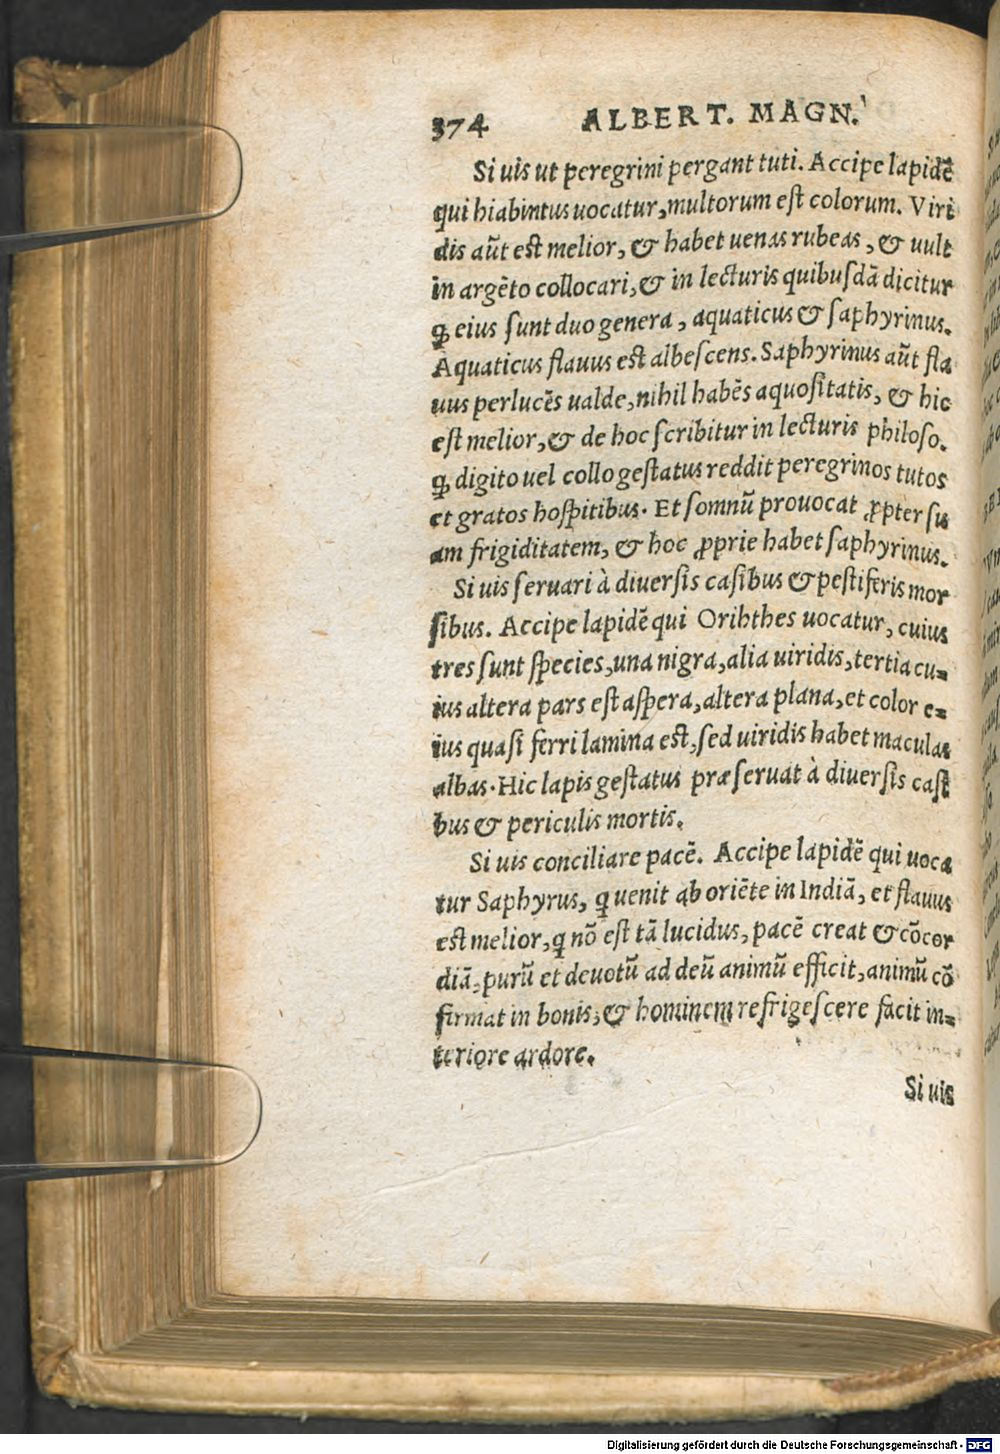 374 ALBERT. MAGN.
Si uis ut peregrini pergant tuti. Accipe lapidē
qui hiabintus uocatur, multorum eſt colorum. Viri
dis aūt est melior, & habet uenas rubeas, & uult
in argēto collocari, & in lecturis quibuſdā dicitur
ꝙ eius ſunt duo genera, aquaticus & ſaphyrinus.
Aquaticus flauus est albeſcens. Saphyrinus aūt fla
uus perlucēs ualde, nihil habēs aquoſitatis, & hic
eſt melior, & de hoc ſcribitur in lecturis philoſo.
ꝙ digito uel collo geſtatus reddit peregrinos tutos
et gratos hoſpitibus. Et ſomnū prouocat ꝓpter ſu
am frigiditatem, & hoc ꝓprie habet ſaphyrinus.
Si uis ſeruari à diuerſis caſibus & peſtiferis mor
ſibus. Accipe lapidē qui Orihthes uocatur, cuius
tres ſunt ſpecies, una nigra, alia uiridis, tertia cu-
ius altera pars eſt aſpera, altera plana, et color e-
ius quaſi ferri lamina est, ſed uiridis habet maculas
albas. Hic lapis geſtatus præſeruat à diuerſis caſi
bus & periculis mortis.
Si uis conciliare pacē. Accipe lapidē qui uoca
tur Saphyrus, q uenit ab oriēte in Indiā, et flauus
est melior, q nō eſt tā lucidus, pacē creat & cōcor
diā, purū et deuotū ad deū animū efficit, animū cō
firmat in bonis, & hominem refrigeſcere facit in-
teriore ardore.
Si uis
Digitalisierung gefördert durch die Deutsche Forschungsgemeinschaft - DFG